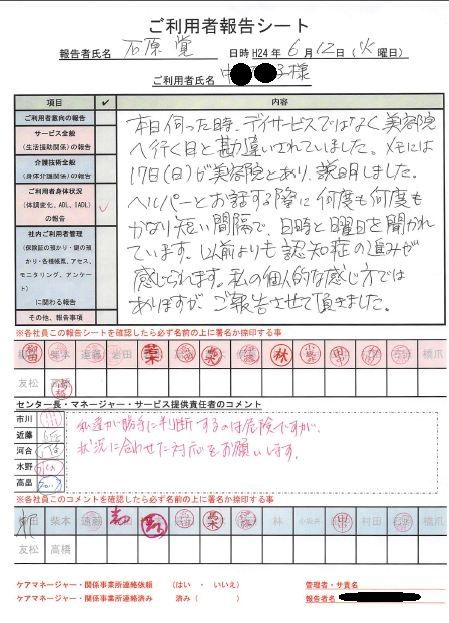 ご利用者報告シート
報告者氏名 石原 覚 日時 H24年 6月 12日 (火曜日)
ご利用者氏名 中 子様
項目 ✓ 内容
ご利用者意向の報告
サービス全般
(生活援助関係)の報告
介護技術全般
(身体介護関係)の報告
ご利用者身体状況
(体調変化、ADL、IADL)
の報告
社内ご利用者管理
(保険証の預かり・鍵の預
かり・各種帳票、アセス、
モニタリング、アンケー
ト)
に関わる報告
その他、報告事項
本日伺った時、デイサービスではなく美容院
へ行く日と勘違いされていました。メモには
17日(日)が美容院とあり、説明しました。
ヘルパーとお話する際に何度も何度も
かなり短い間隔で、日時と曜日を聞かれ
ています。以前よりも認知症の進みが
感じられます。私の個人的な感じ方では
ありますが、ご報告させて頂きました。
※各社員この報告シートを確認したら必ず名前の上に署名か捺印する事
柴本 遠藤 岩田 林 橋爪
友松 高橋
センター長・マネージャー・サービス提供責任者のコメント
市川
近藤
河合
水野
高畠
私達が勝手に判断するのは危険ですが、
状況に合わせた対応をお願いします。
※各社員このコメントを確認したら必ず名前の上に署名か捺印する事
柴本 遠藤 林 小坂井 村田 橋爪
友松 高橋
ケアマネージャー・関係事業所連絡依頼 (はい ・ いいえ)
ケアマネージャー・関係事業所連絡済み 済み( )
管理者・サ責名
報告者名